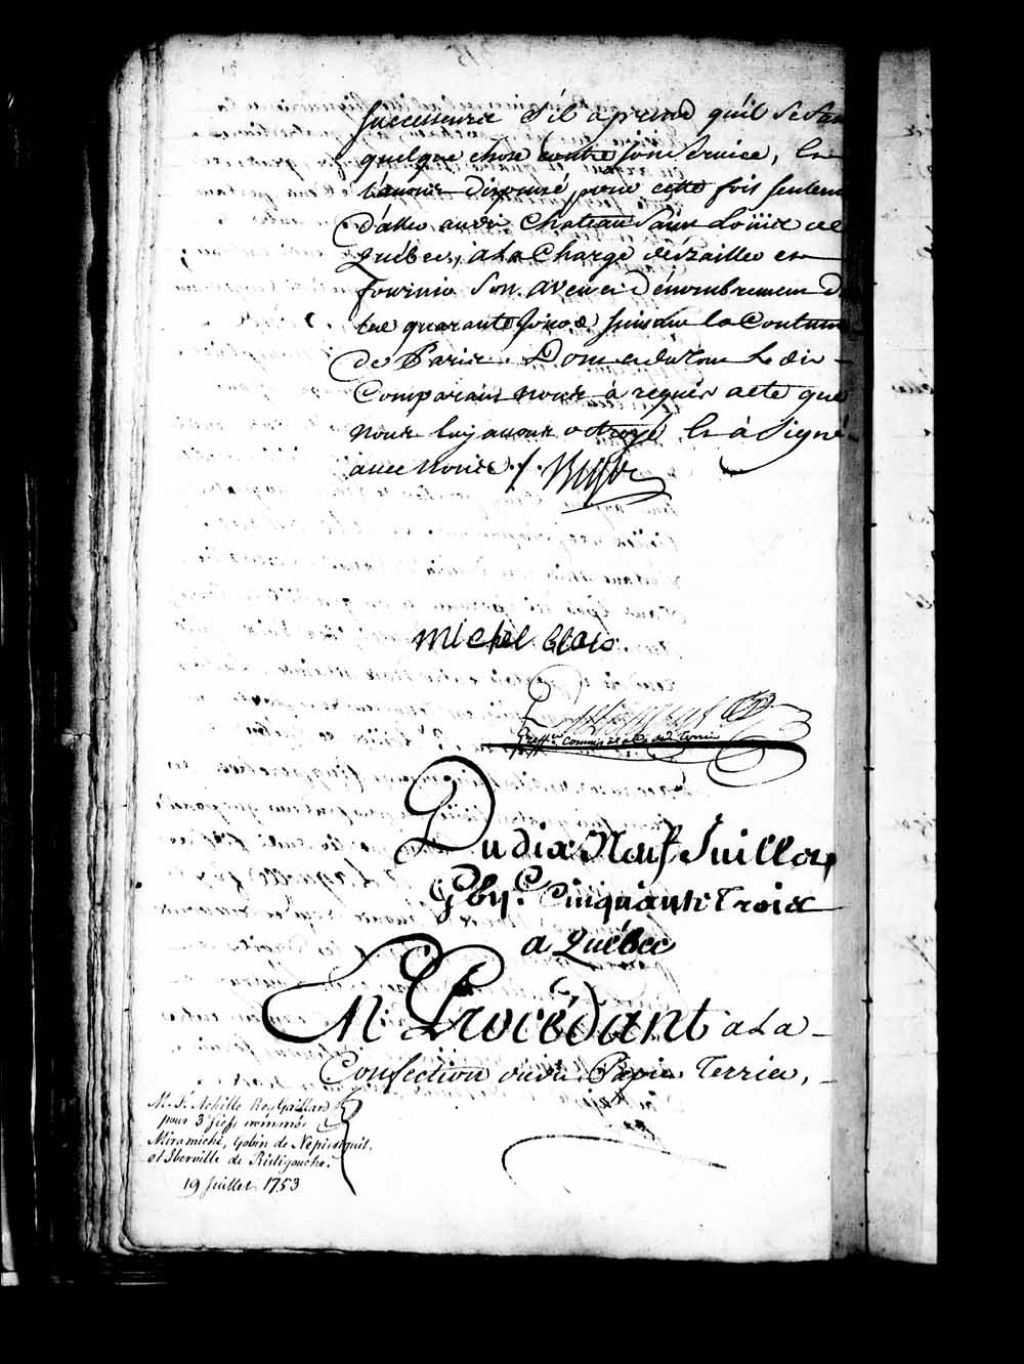 Successeurs S'il aprend qu'il se fas
quelque chose contre son Service, Et
L'avons dispensé pour cette fois seulem
d'aller audit Chateau Saint Loüis de
Québec, à La Charge de bailler et
fournir Son aveu et Dénombrement D
les quarante jours suivant la Coutume
de Paris. Dont et du tout Le dit
Comparant nous à requis acte que
nous luy avons octroyé Et à Signé
avec nous ./. Bigot
Michel blais
Greffier Commis
Du dix Neuf Juillet
Gbij.C Cinquante Trois
a Québec
En Procédant a La
Confection dudit Papier Terrier,
M. J. Achille Rey Gaillard
pour 3 fiefs nommés
Miramichi, Gobin de Népisiguit,
et Iberville de Ristigouche.
19 Juillet 1753